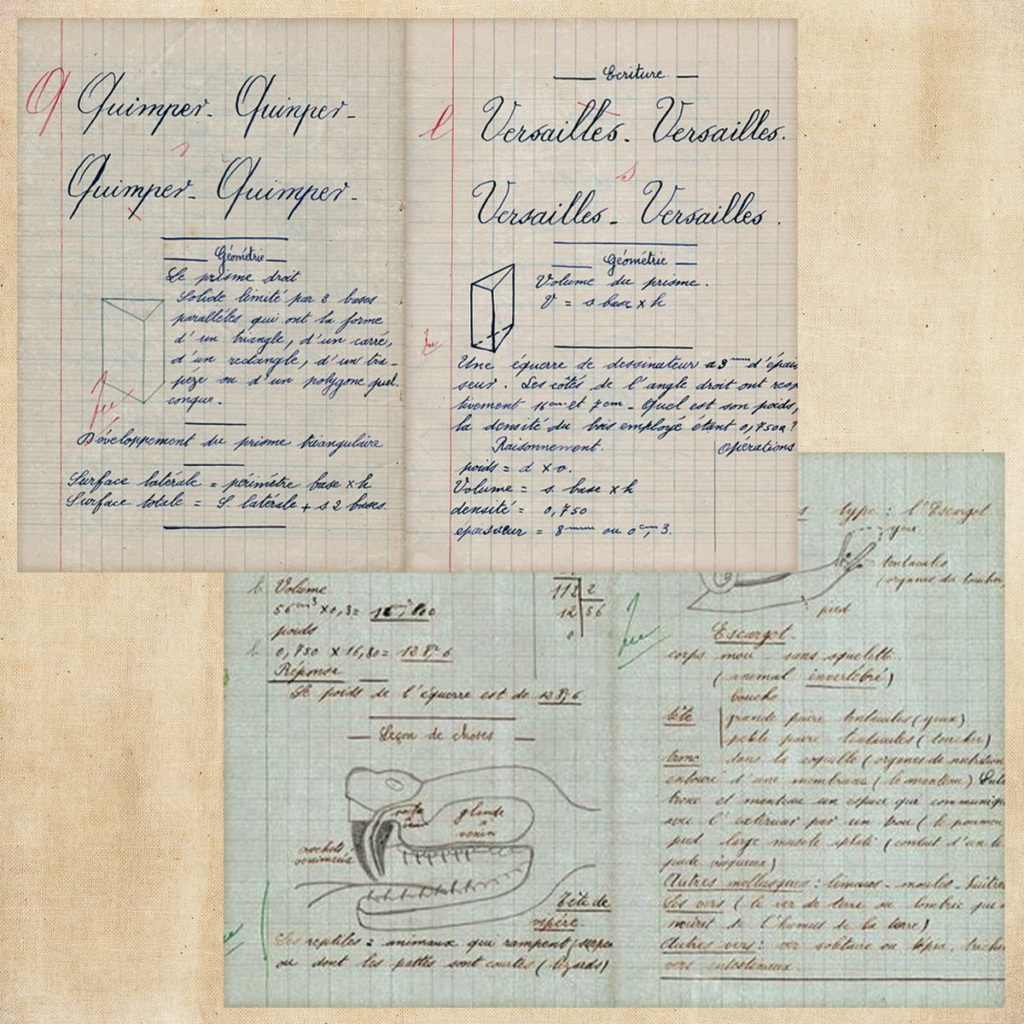 Q Quimper - Quinper -
s
Quimper - Quimper -
Géométrie
Le prisme droit
Solide limité par 2 bases
parallèles qui ont la forme
d'un triangle, d'un carré,
d'un rectangle, d'un tra-
pèze ou d'un polygone quel
conque.
Développement du prisme triangulaire
Surface latérale = périmètre base x h
Surface totale = S. latérale + s 2 bases.
Ecriture.
l Versailles - Versailles.
s
Versailles - Versailles.
Géométrie
Volume du prisme.
V = s base x h
Une équerre de dessinateur a 3 mm d'épais
seur. Les côtés de l'angle droit ont resp
tivement 16 cm et 7 cm - Quel est son poids,
la densité du bois employé étant 0,750?
Raisonnement. opérations
poids = d x v.
Volume = s. base x h
densité = 0,750
épaisseur = mm ou 0 cm, 3.
b. Volume
56 cm3 x 0,3 =
poids
b. 0,750 x 16,80 = 12 g, 6
Réponse
Le poids de l'équerre est de 12 g, 6
112 2
12 56
0
Leçon de choses
glande
à
venin
crochets
venimeux
Tête de
vipère
Les reptiles = animaux qui rampent (serpen
ou dont les pattes sont courtes (lézards)
s type : l'Escargot
yeux
tentacules
(organes du toucher
pied
Escargot.
corps mou - sans squelette
(animal invertébré)
bouche
tête grande paire tentacules (yeux)
petite paire tentacules (toucher)
tronc dans la coquille (organes de nutrition
entouré d'une membrane (le manteau) Entre
tronc et manteau un espace qui communiq
avec l'extérieur par un trou (le poumon
pied large muscle aplati (enduit d'un li
quide visqueux)
Autres mollusques : limaces - moules - huîtres
Les vers (le ver de terre ou lombric qui
nourrit de l'humus de la terre)
Autres vers : ver solitaire ou ténia, trichi
vers intestinaux.